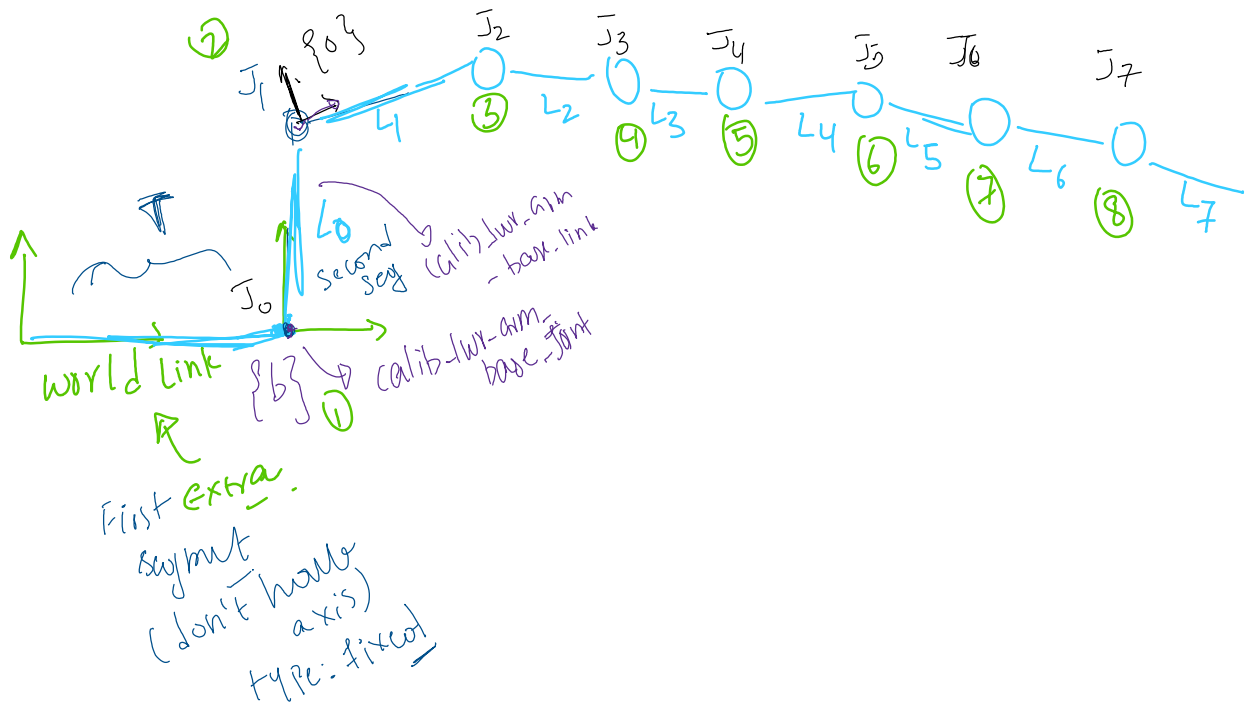 2
{0}
J1
J2
J3
J4
J5
J6
J7
L1
L2
L3
L4
L5
L6
L7
3
4
5
6
7
8
T
L0
second
seg
calib_lwr_arm
- base_link
J0
world Link
{b}
1
calib_lwr_arm_
base_joint
First extra.
(don't have
axis)
type: fixed